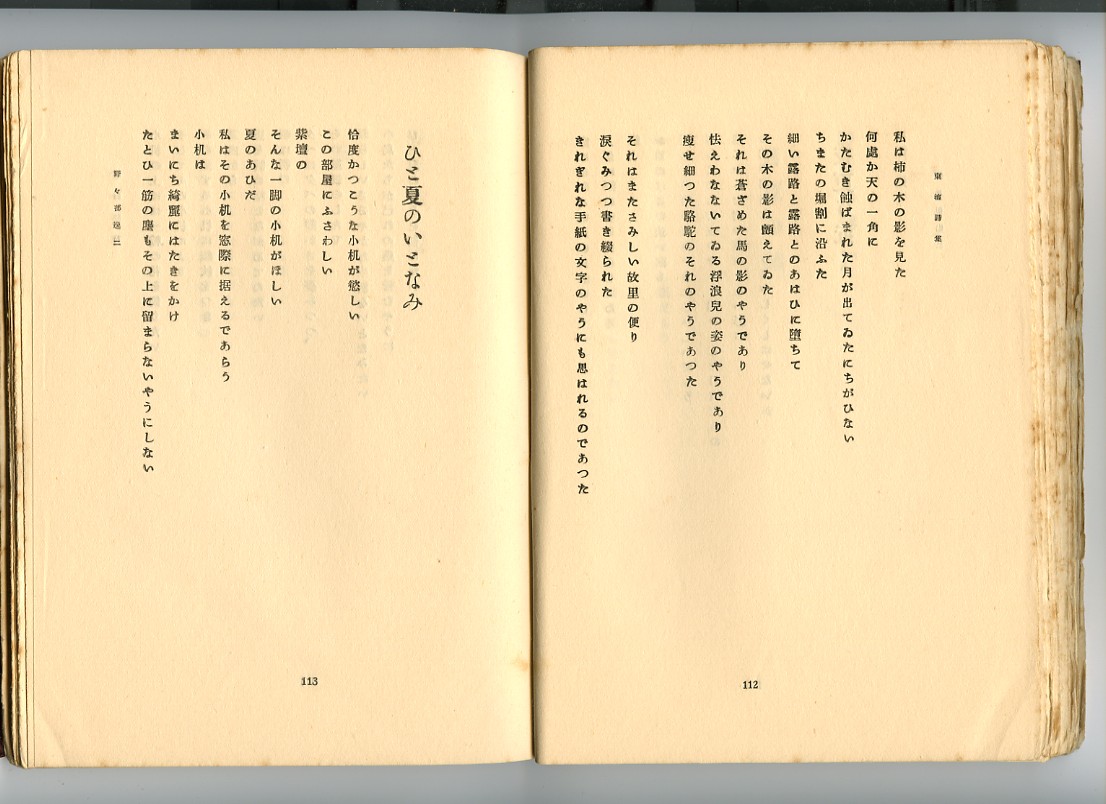 東海詩集
私は柿の木の影を見た
何處か天の一角に
かたむき蝕ばまれた月が出てゐたにちがひない
ちまたの堀割に沿ふた
細い露路と露路とのあはひに墮ちて
その木の影は顫えてゐた
それは蒼ざめた馬の影のやうであり
怯えわなないてゐる浮浪兒の姿のやうであり
瘦せ細つた駱駝のそれのやうであつた
それはまたさみしい故里の便り
淚ぐみつつ書き綴られた
きれぎれな手紙の文字のやうにも思はれるのであつた
112
ひと夏のいとなみ
恰度かつこうな小机が慾しい
この部屋にふさわしい
紫壇の
そんな一脚の小机がほしい
夏のあひだ
私はその小机を窓際に据えるであらう
小机は
まいにち綺麗にはたきをかけ
たとひ一筋の塵もその上に留まらないやうにしない
野々部逸二
113